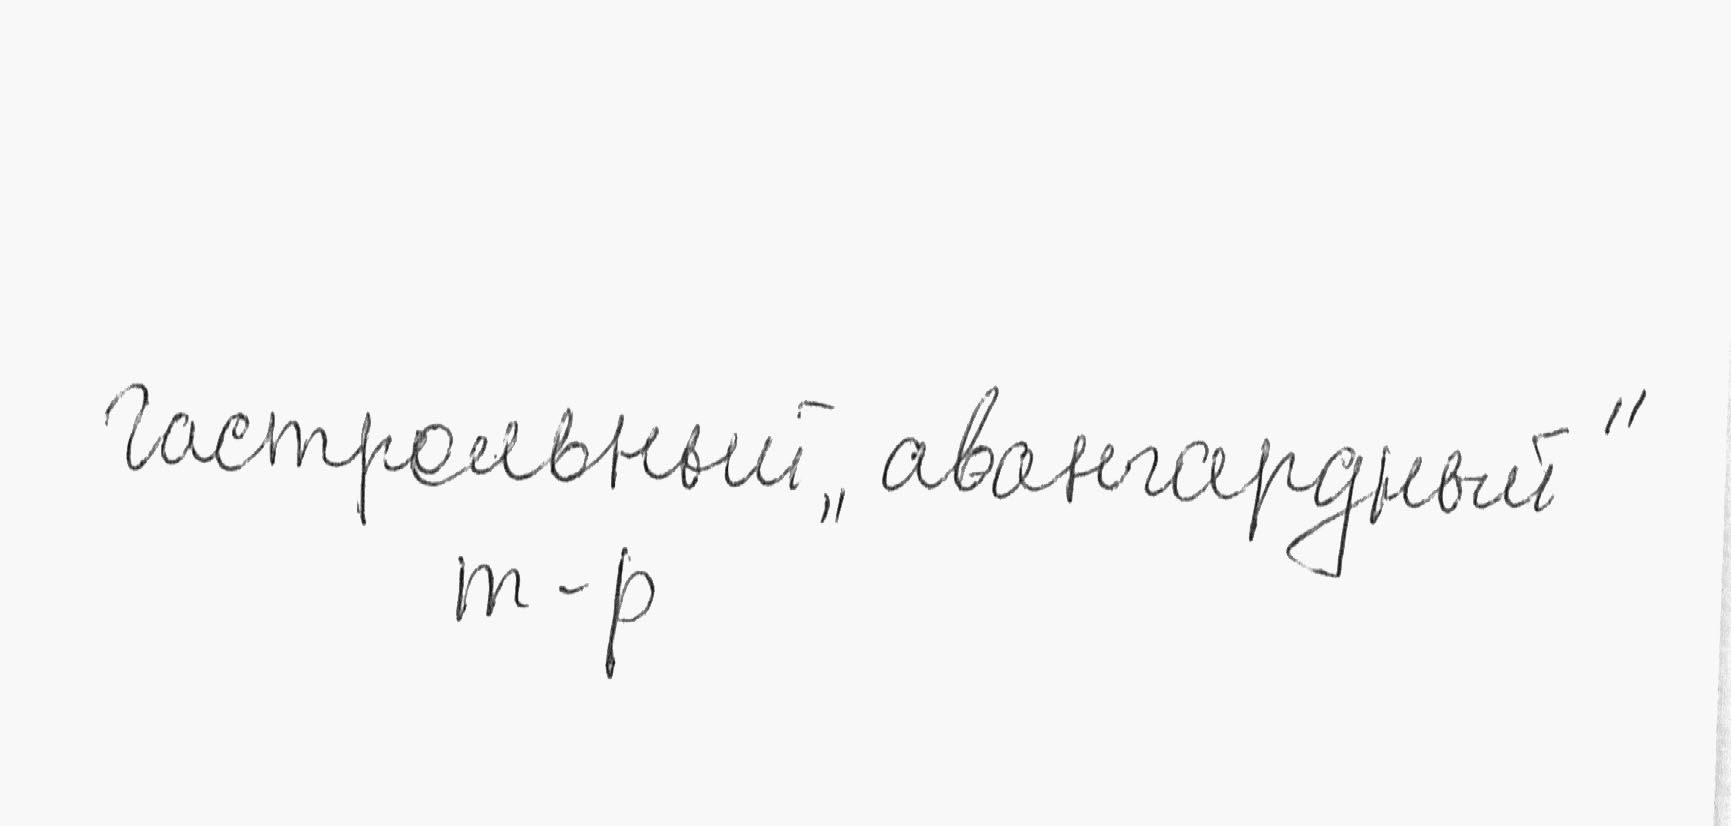 гастрольный „авангардный"
т-р